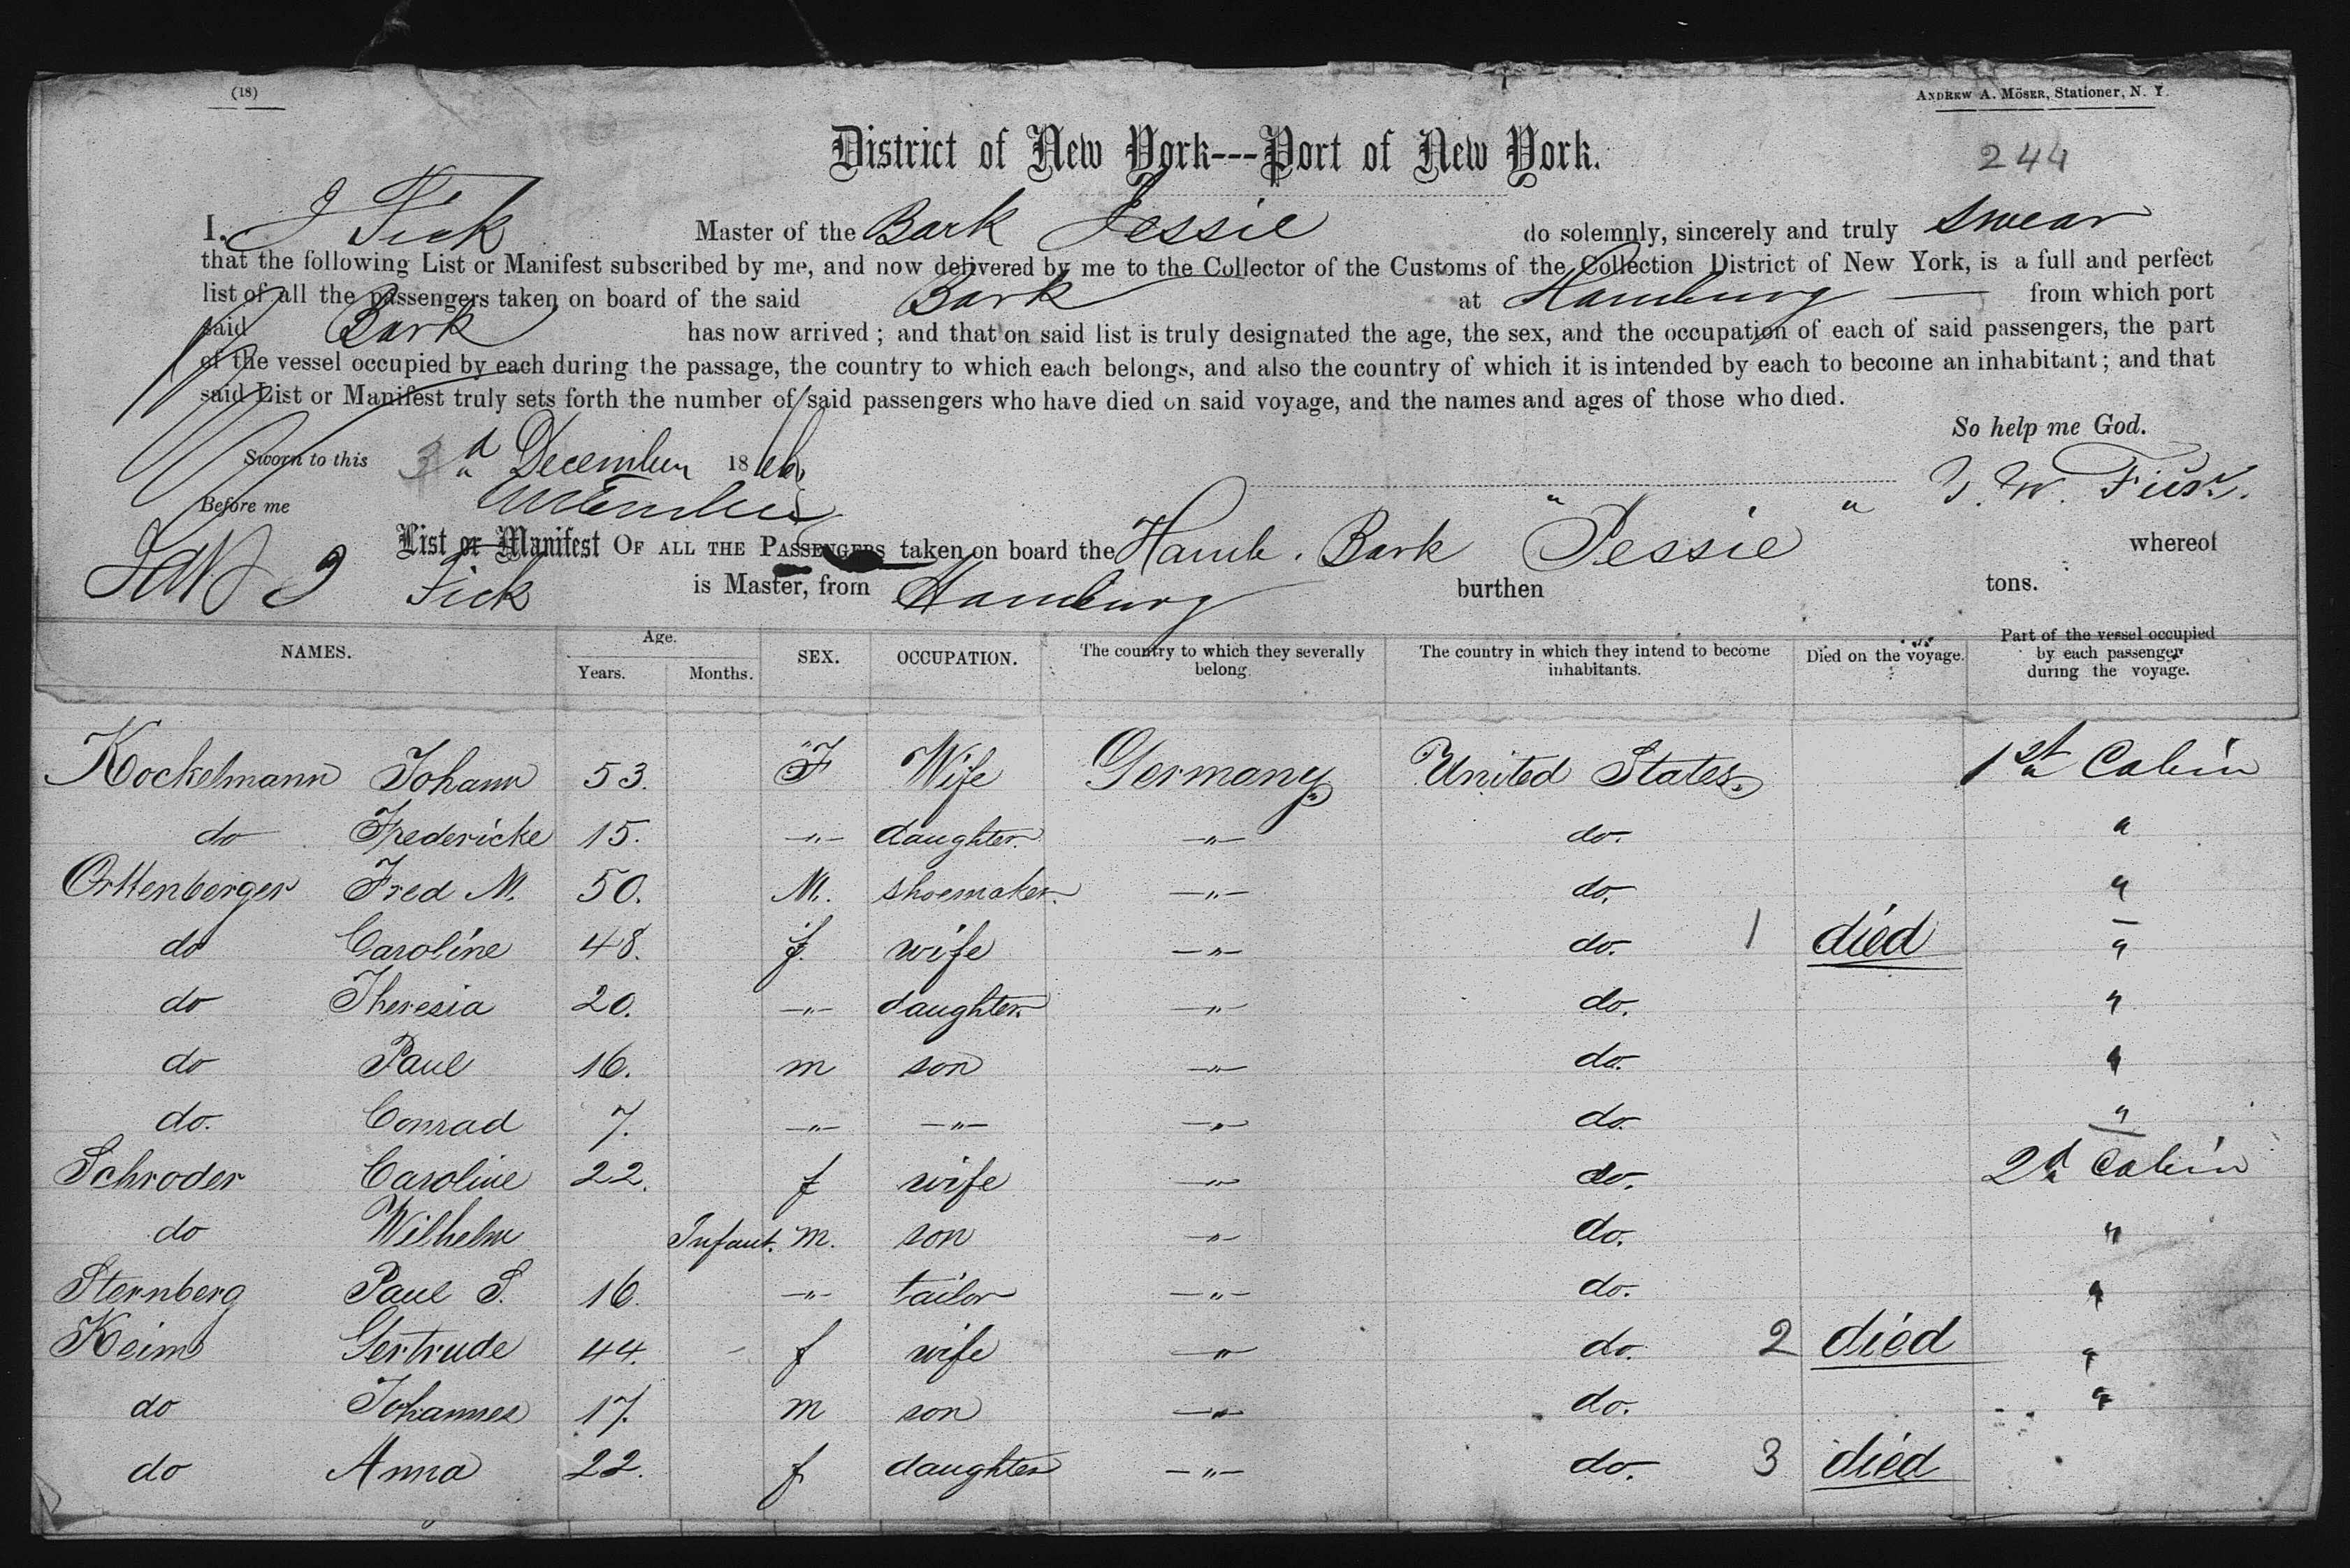 (18)
ANDREW A. MÖSER, Stationer, N. Y.
District of New York---Port of New York.
244
I, J Fick Master of the Bark Jessie do solemnly, sincerely and truly swear
that the following List or Manifest subscribed by me, and now delivered by me to the Collector of the Customs of the Collection District of New York, is a full and perfect
list of all the passengers taken on board of the said Bark at Hamburg from which port
said Bark has now arrived; and that on said list is truly designated the age, the sex, and the occupation of each of said passengers, the part
of the vessel occupied by each during the passage, the country to which each belongs, and also the country of which it is intended by each to become an inhabitant; and that
said List or Manifest truly sets forth the number of said passengers who have died on said voyage, and the names and ages of those who died.
So help me God.
Sworn to this 3d December 1866
Before me
List or Manifest OF ALL THE PASSENGERS taken on board the Hamb. Bark "Jessie" whereof
Fick is Master, from Hamburg burthen tons.
NAMES. Age. Years. Months. SEX. OCCUPATION. The country to which they severally belong. The country in which they intend to become inhabitants. Died on the voyage. Part of the vessel occupied by each passenger during the voyage.
Kockelmann Johann 53. F Wife Germany United States 1st Cabin
do Fredericke 15. -"- daughter. -"- do. "
Orttenberger Fred M. 50. M. shoemaker. -"- do. "
do Caroline 48. f. wife -"- do. 1 died "
do Theresia 20. -"- daughter. -"- do. "
do Paul 16. m son -"- do. "
do. Conrad 7. -"- -"- -"- do. "
Schroder Caroline 22. f wife -"- do. 2d Cabin
do Wilhelm Infant. m. son -"- do. "
Sternberg Paul S. 16. -"- tailor -"- do. "
Keim Gertrude 44. f wife -"- do. 2 died "
do Johannes 17. m son -"- do. "
do Anna 22. f daughter -"- do. 3 died